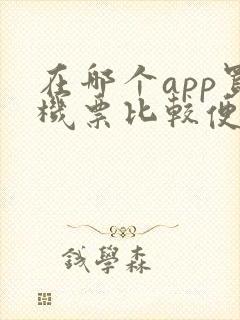 在哪个app買
機票比較便
錢學森